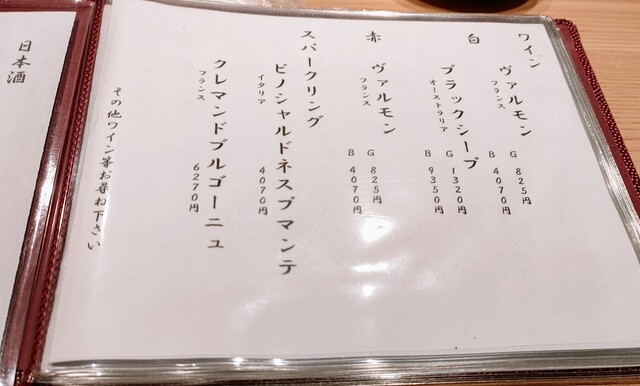 ワイン
ヴァルモン
フランス
G 825円
B 4070円
白
ブラックシープ
オーストラリア
G 1320円
B 9350円
赤
ヴァルモン
フランス
G 825円
B 4070円
スパークリング
ピノシャルドネスプマンテ
イタリア
4070円
クレマンドブルゴーニュ
フランス
6270円
その他ワイン等お尋ね下さい
日本酒